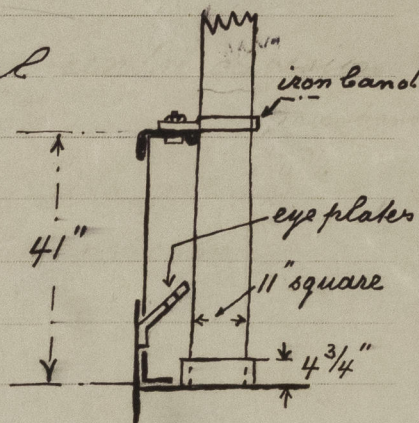 iron band
41"
eye plates
11" square
4 3/4"